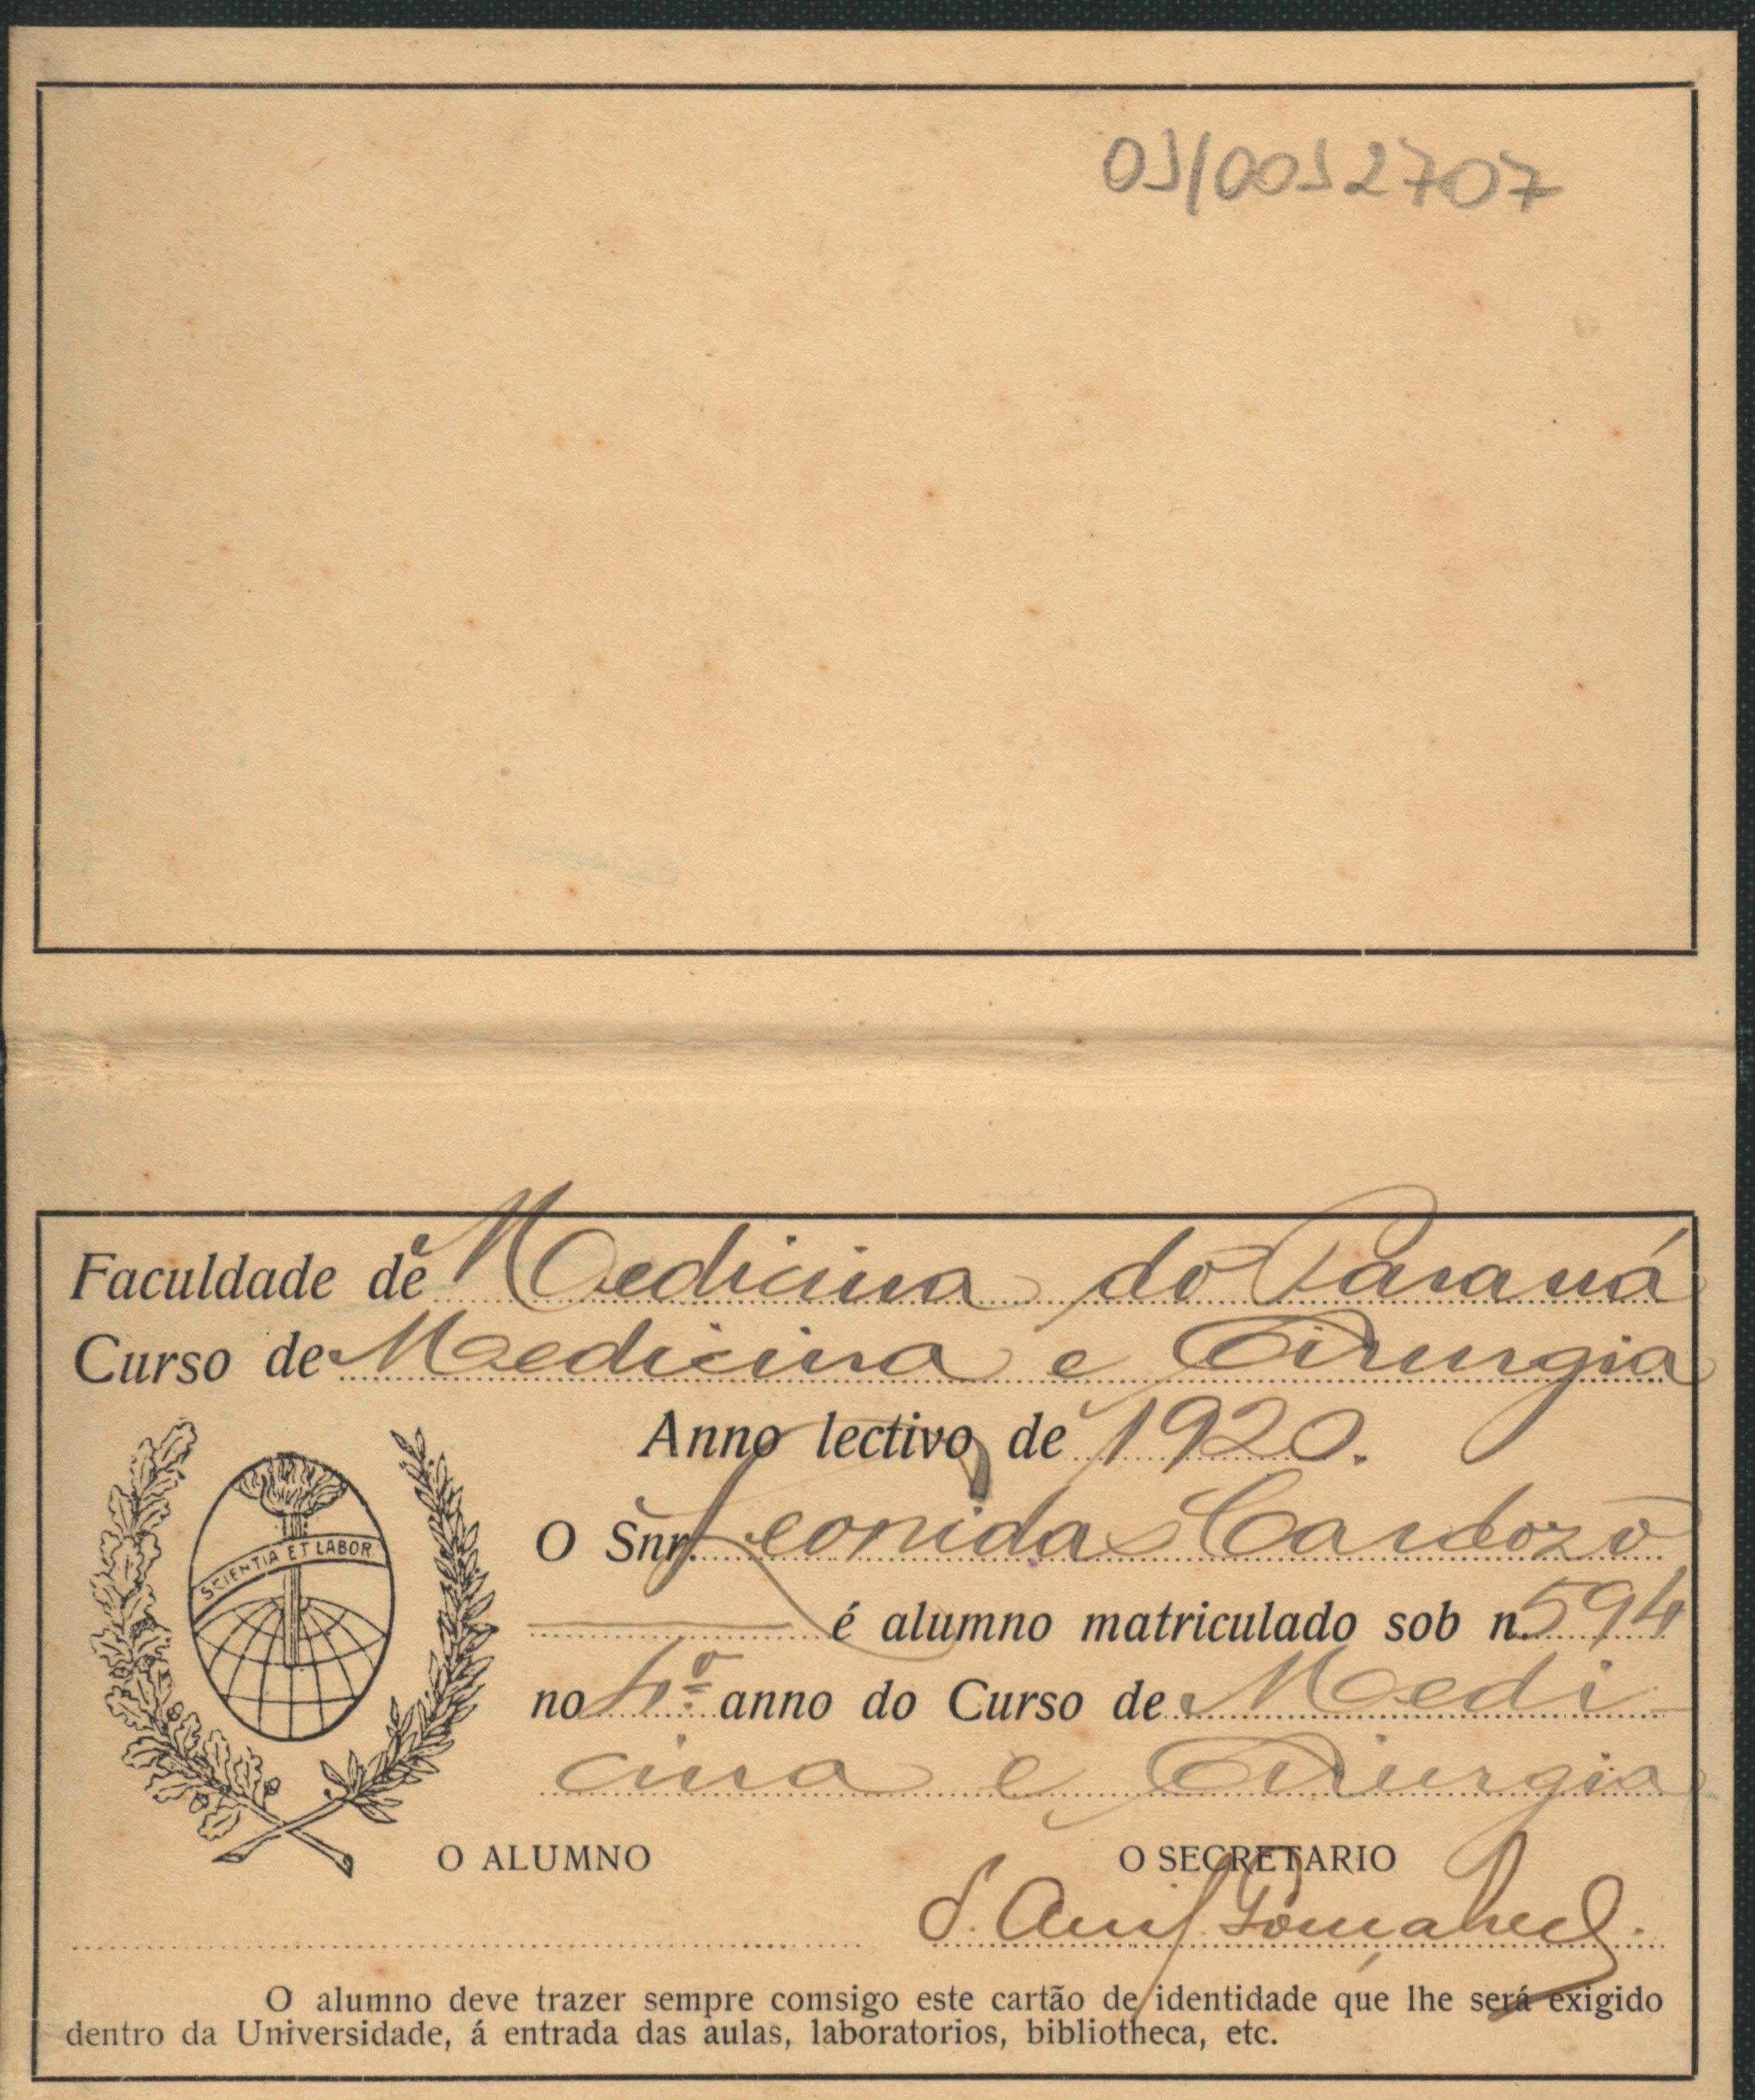 03/0032707
Faculdade de Medicina do Paraná
Curso de Medicina e Cirurgia
Anno lectivo de 1920.
SCIENTIA ET LABOR
O Snr. Leonidas Cardozo
é alumno matriculado sob n. 594
no 4º anno do Curso de Medi
cina e Cirurgia
O ALUMNO O SECRETARIO
O alumno deve trazer sempre comsigo este cartão de identidade que lhe será exigido
dentro da Universidade, á entrada das aulas, laboratorios, bibliotheca, etc.